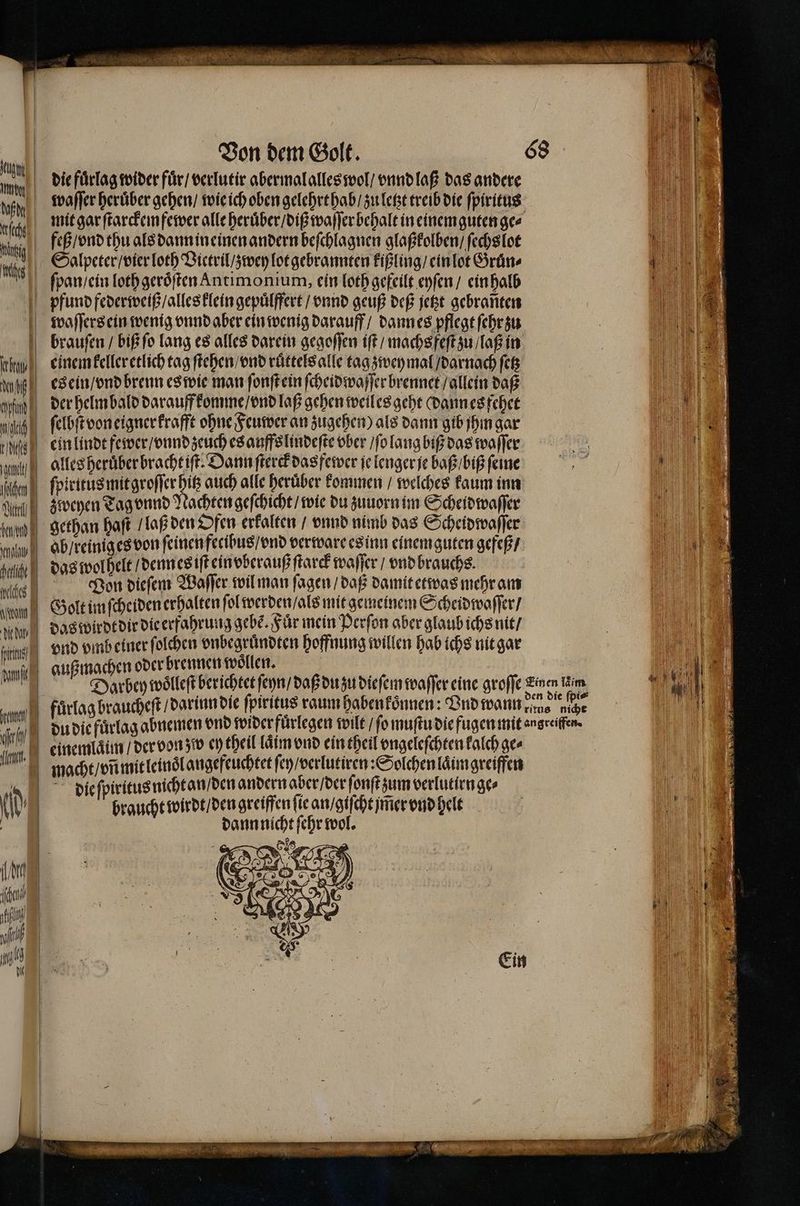 Von dem Golt. 68
die fuͤrlag wider fuͤr/ verlutir abermal alles wol/ vnnd laß das andere
waſſer heruͤber gehen/ wie ich oben gelehrt hab/ zu letzt treib die ſpiritus
mit gar ſtarckem fewer alle heruͤber/diß waſſer behalt in einem guten ge⸗
feß/vnd thu als dann in einen andern beſchlagnen glaßkolben/ ſechs lot
Salpeter/vier loth Vietril/zwey lot gebrannten kißling/ ein lot Gruͤn⸗
ſpan/ein loth geroͤſten Antimonium, ein loth gefeilt eyſen/ ein halb
pfund federweiß/alles klein gepuͤlffert/ vnnd geuß deß jetzt gebrañten
waſſers ein wenig vnnd aber ein wenig darauff/ dann es pflegt ſehr zu
brauſen/ biß ſo lang es alles darein gegoſſen iſt/ machs feſt zu/laß in
einem keller etlich tag ſtehen/vnd ruͤttels alle tag zwey mal/darnach ſetz
es ein/vnd brenn es wie man ſonſt ein ſcheidwaſſer brennet/allein daß
der helm bald darauff komme/vnd laß gehen weil es geht (dann es ſehet
ſelbſt von eigner krafft ohne Feuwer an zugehen) als dann gib jhm gar
ein lindt fewer/vnnd zeuch es auffs lindeſte vber/ſo lang biß das waſſer
alles heruͤber bracht iſt. Dann ſterck das fewer je lenger je baß/biß ſeine
ſpiritus mit groſſer hitz auch alle heruͤber kommen/ welches kaum inn
zweyen Tag vnnd Nachten geſchicht/wie du zuuorn im Scheidwaſſer
gethan haſt/laß den Ofen erkalten/ vnnd nimb das Scheidwaſſer
ab/reinig es von ſeinen fecibus/vnd verware es inn einem guten gefeß/
das wol helt/denn es iſt ein vberauß ſtarck waſſer/ vnd brauchs.
Von dieſem Waſſer wil man ſagen/daß damit etwas mehr am
Golt im ſcheiden erhalten ſol werden/als mit gemeinem Scheidwaſſer/
das wirdt dir die erfahrung gebẽ. Fuͤr mein Perſon aber glaub ichs nit/
vnd vmb einer ſolchen vnbegruͤndten hoffnung willen hab ichs nit gar
außmachen oder brennen woͤllen.
Darbey woͤlleſt berichtet ſeyn/daß du zu dieſem waſſer eine groſſe
fuͤrlag braucheſt/darinn die ſpiritus raum haben koͤnnen: Vnd wann
du die fuͤrlag abnemen vnd wider fuͤrlegen wilt/ſo muſtu die fugen mit
einem laͤim/der von zw ey theil laͤim vnd ein theil vngeleſchten kalch ge⸗
macht/vñ mit leinoͤl angefeuchtet ſey/verlutiren: Solchen laͤim greiffen
die ſpiritus nicht an/den andern aber/der ſonſt zum verlutirn ge⸗
braucht wirdt/den greiffen ſie an/giſcht jm̃er vnd helt
dann nicht ſehr wol.
Einen laͤim
den die ſpi⸗
ritus nicht
angreiffen.
Ein